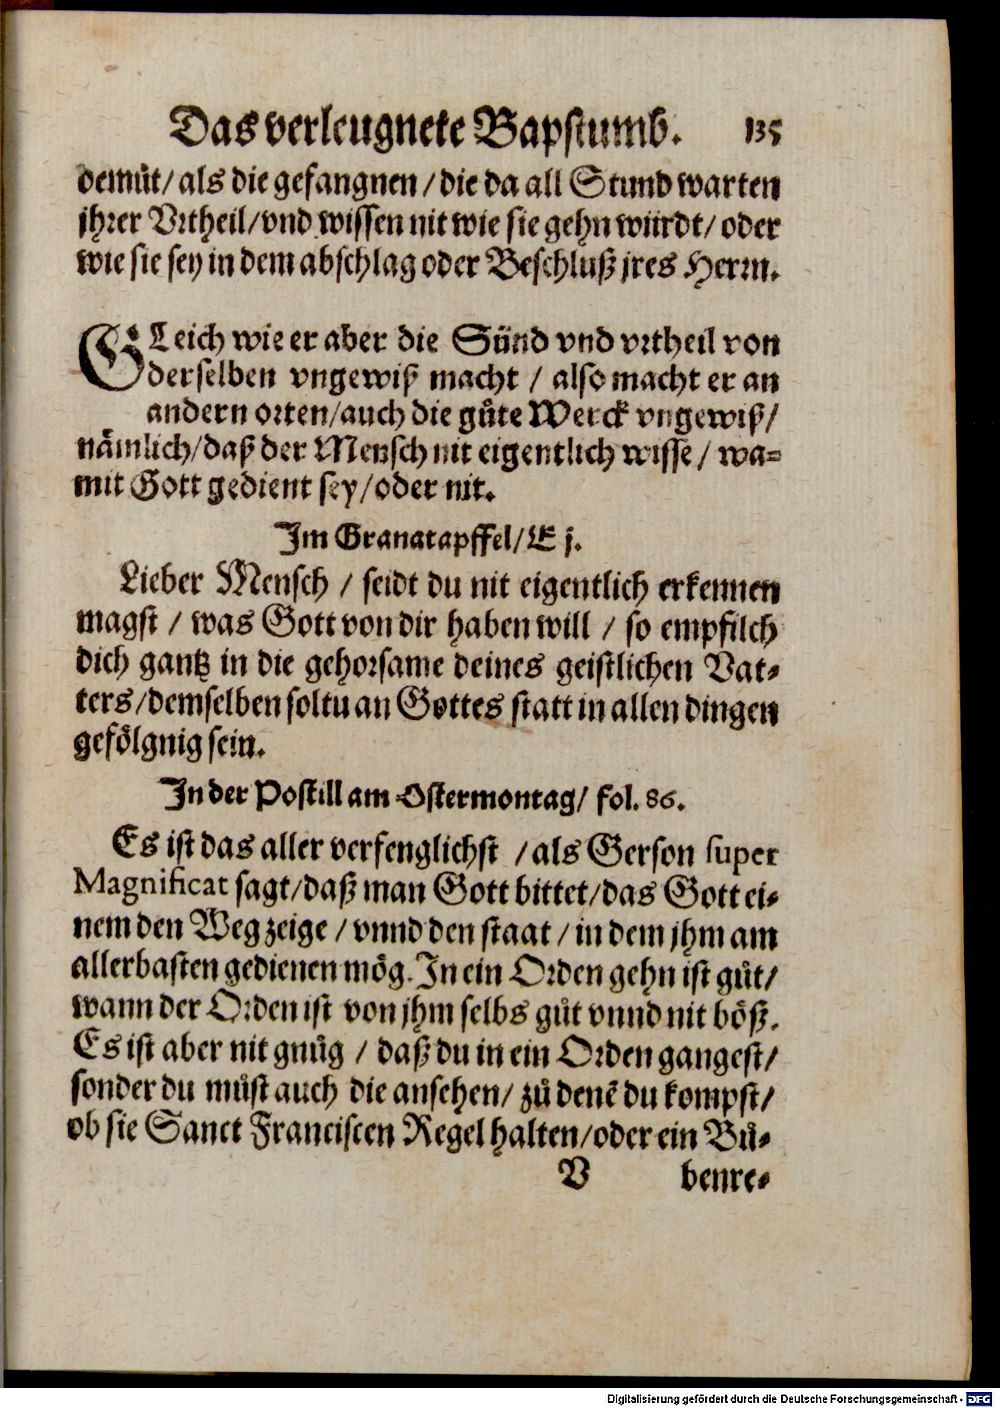 Das verleugnete Bapstumb. 135
demuͤt/ als die gefangnen / die da all Stund warten
jhrer Vrtheil/vnd wissen nit wie sie gehn wuͤrdt/ oder
wie sie sey in dem abschlag oder Beschluß jres Herrn.
GLeich wie er aber die Suͤnd vnd vrtheil von
derselben vngewiß macht / also macht er an
andern orten/auch die guͤte Werck vngewiß/
naͤmlich/daß der Mensch nit eigentlich wisse / wa=
mit Gott gedient sey/oder nit.
Im Granatapffel/E j.
Lieber Mensch / seidt du nit eigentlich erkennen
magst / was Gott von dir haben will / so empfilch
dich gantz in die gehorsame deines geistlichen Vat-
ters/demselben soltu an Gottes statt in allen dingen
gefoͤlgnig sein.
In der Postill am Ostermontag/ fol. 86.
Es ist das aller verfenglichst /als Gerson super
Magnificat sagt/daß man Gott bittet/das Gott ei-
nem den Weg zeige / vnnd den staat / in dem jhm am
allerbasten gedienen moͤg. In ein Orden gehn ist guͤt/
wann der Orden ist von jhm selbs guͤt vnnd nit boͤß.
Es ist aber nit gnuͤg / daß du in ein Orden gangest/
sonder du muͤst auch die ansehen/ zuͤ denẽ du kompst/
ob sie Sanct Franciscen Regel halten/oder ein Buͤ-
V benre-
Digitalisierung gefördert durch die Deutsche Forschungsgemeinschaft - DFG